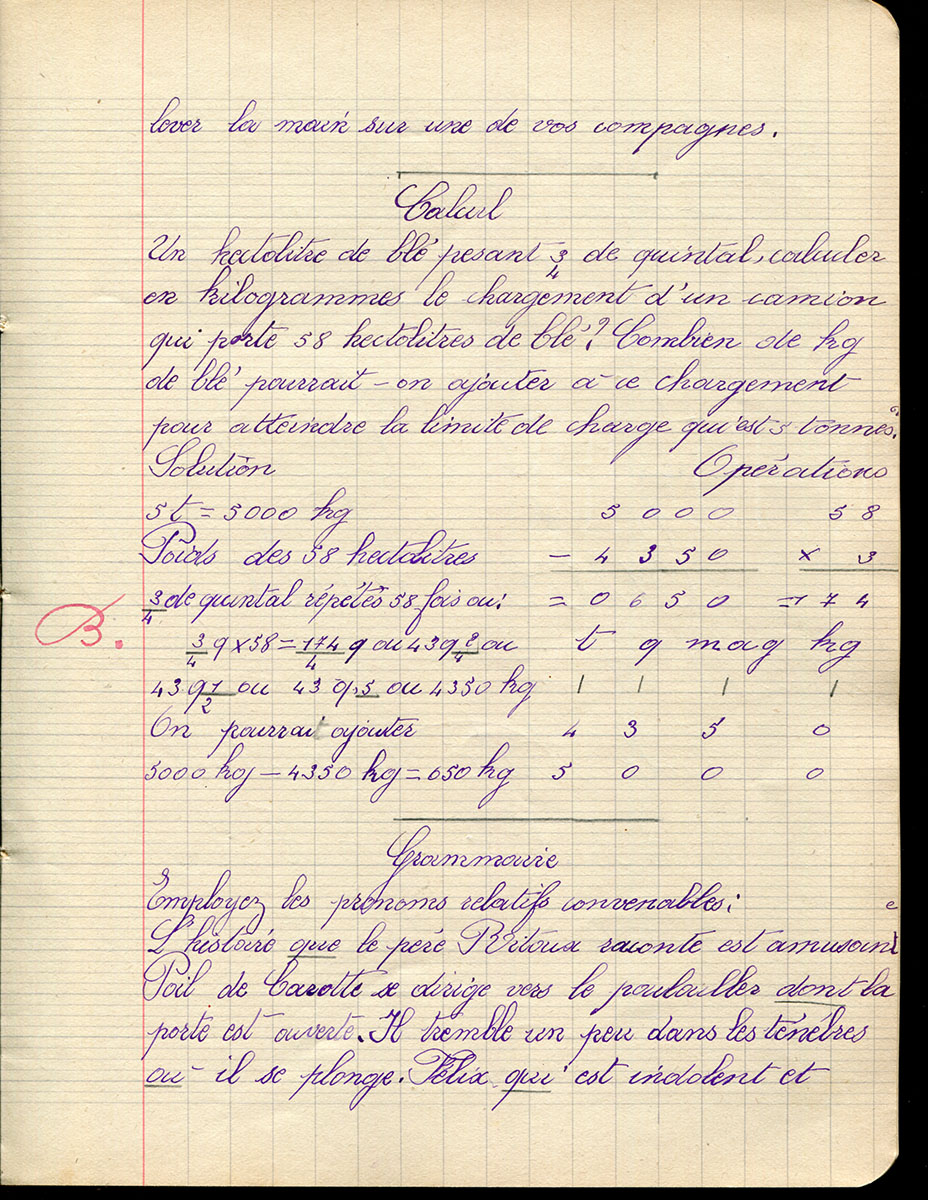 lever la main sur une de vos compagnes.
Calcul
Un hectolitre de blé pesant 3/4 de quintal, calculer
en kilogrammes le chargement d'un camion
qui porte 58 hectolitres de blé? Combien de kg
de blé pourrait-on ajouter à ce chargement
pour atteindre la limite de charge qui est 5 tonnes.
Solution Opérations
5 t = 5000 kg 5 0 0 0 5 8
Poids des 58 hectolitres - 4 3 5 0 x 3
3/4 de quintal répétés 58 fois ou: = 0 6 5 0 = 1 7 4
B.
3/4 q x 58 = 174/4 q ou 43 q 2/4 ou t q mag kg
43 q 1/2 ou 43 q,5 ou 4350 kg | | | |
On pourrait ajouter 4 3 5 0
5000 kg - 4350 kg = 650 kg 5 0 0 0
Grammaire
Employez les pronoms relatifs convenables:
L'histoire que le père Ritoux raconte est amusante
Poil de Carotte se dirige vers le poulailler dont la
porte est ouverte. Il tremble un peu dans les ténèbres
où il se plonge. Félix qui est indolent et